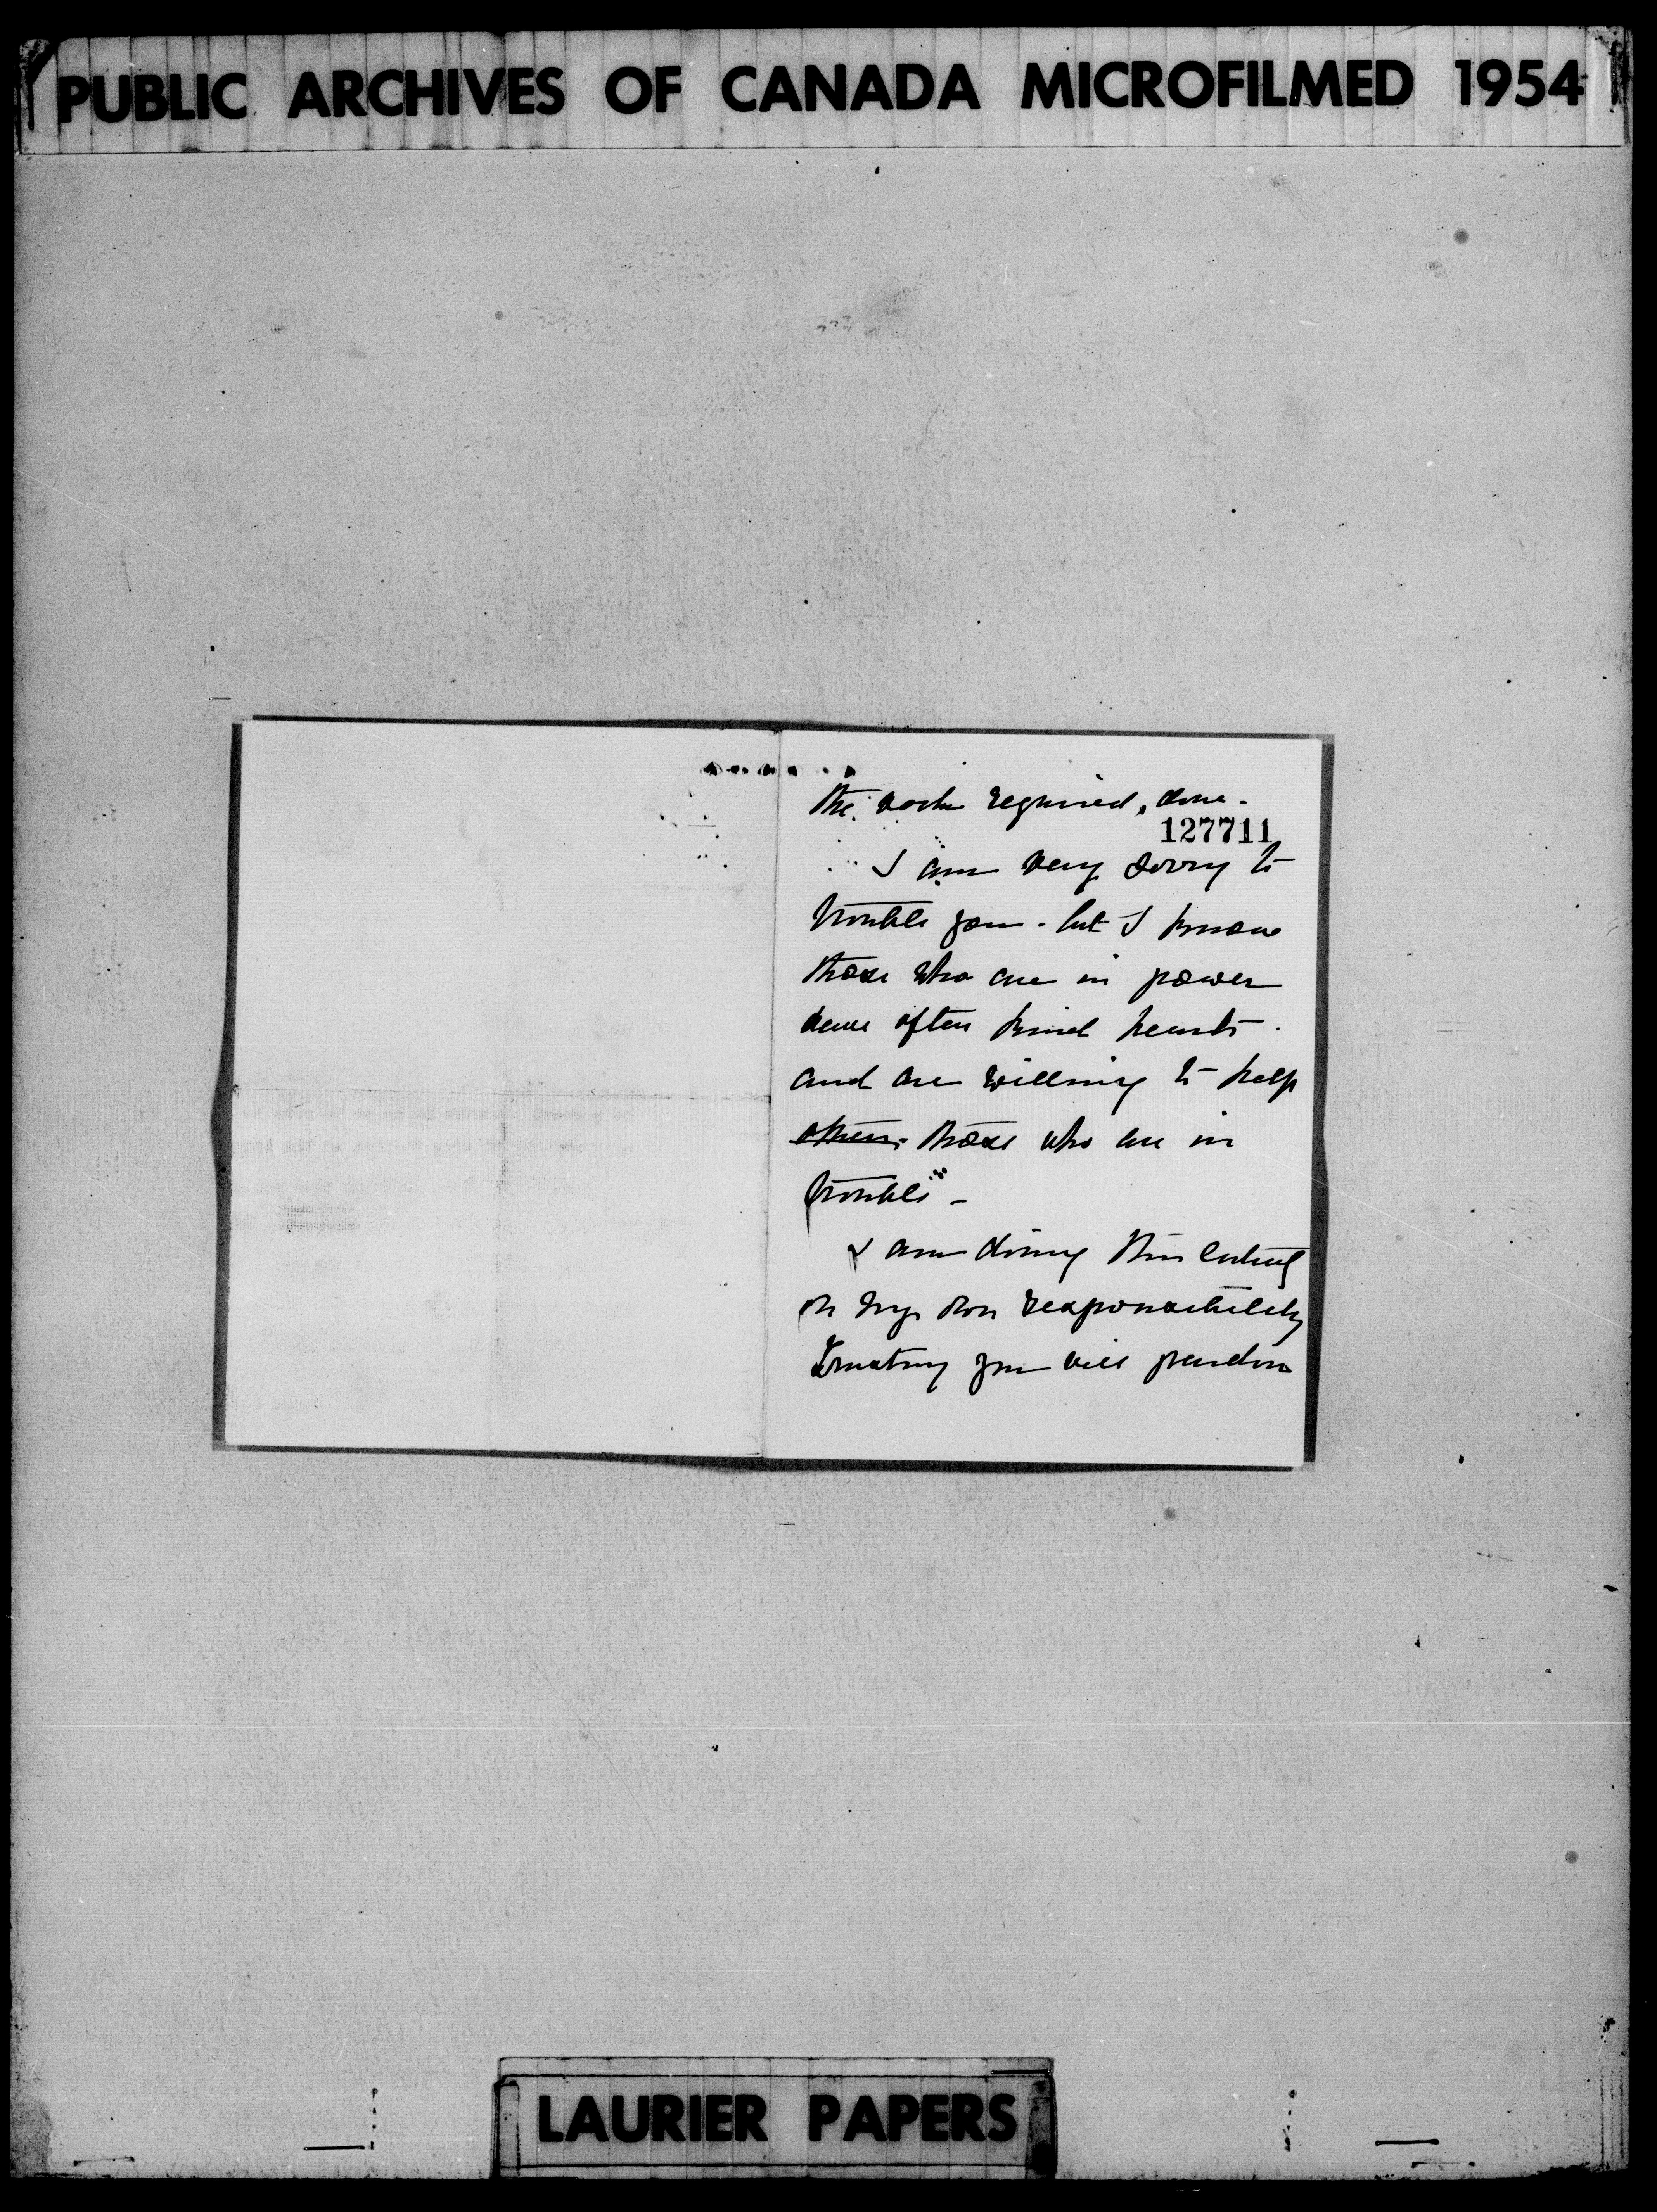 PUBLIC ARCHIVES OF CANADA MICROFILMED 1954
the work required, done.
127711
I am very sorry to
trouble you. but I know
those who are in power
have often kind hearts.
and are willing to help
others. those who are in
trouble -
I am doing this entirely
on my own responsibility
Trusting you will pardon
LAURIER PAPERS